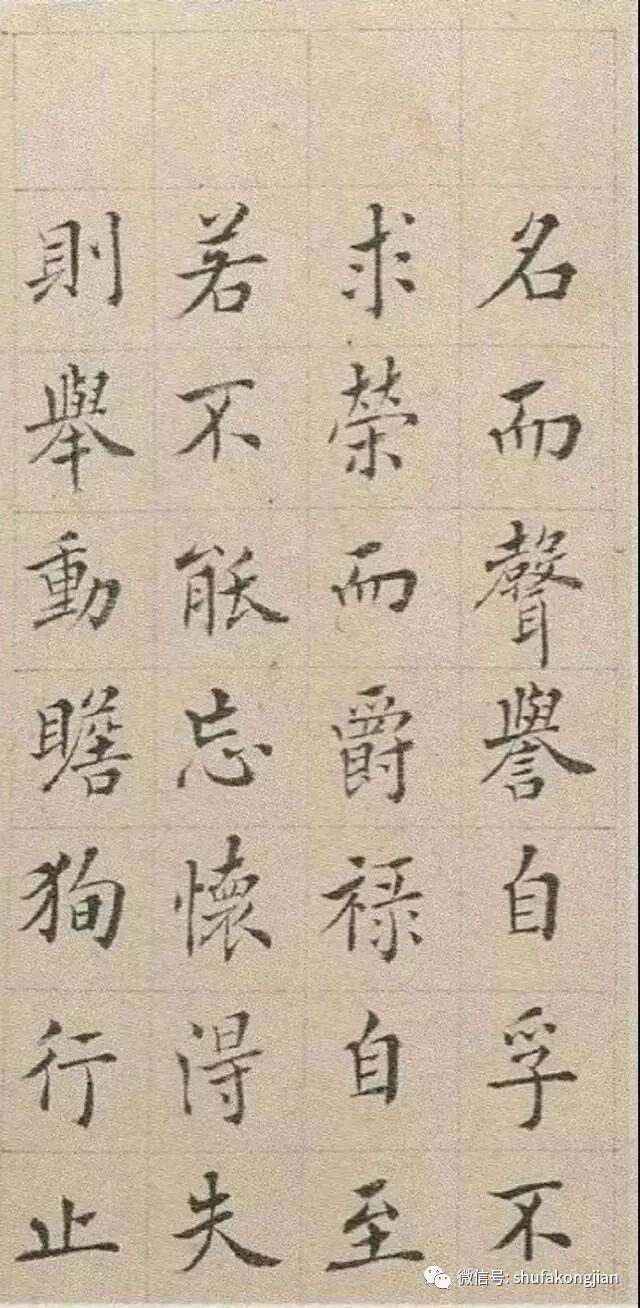 名而聲譽自孚不
求榮而爵祿自至
若不能忘懷得失
則舉動瞻狥行止
微信号: shufakongjian